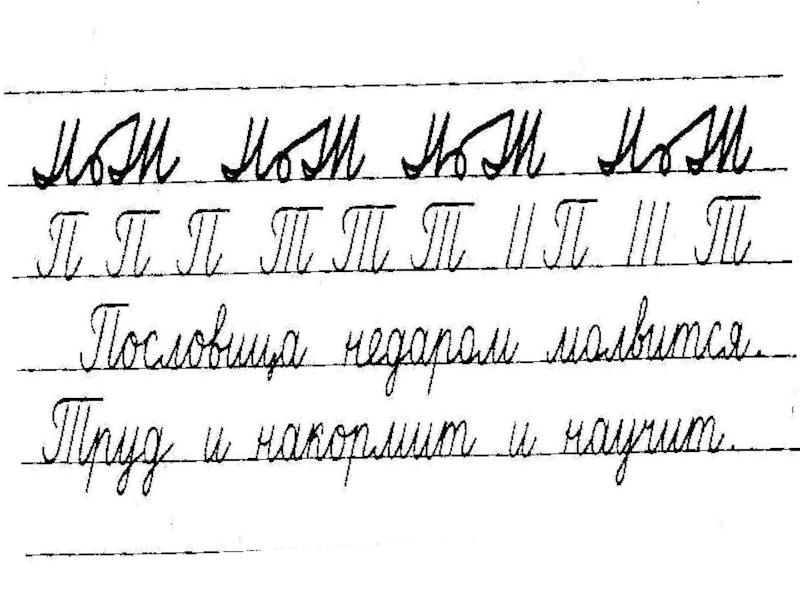 П П П Т Т Т П Т
Пословица недаром молвится.
Труд и накормит и научит.